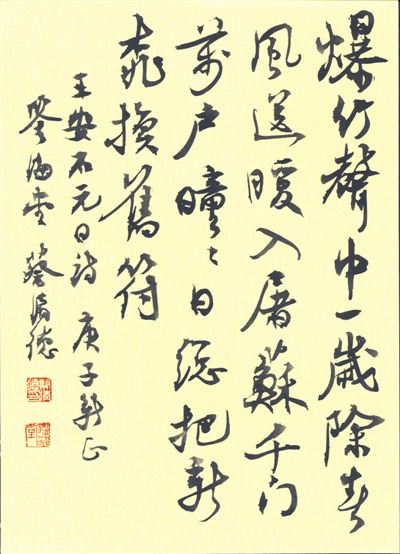 爆竹聲中一歲除春
風送暖入屠蘇千门
萬户曈〻日總把新
桃換舊符
王安石元日詩 庚子新正
翏海堂 蔡涵德